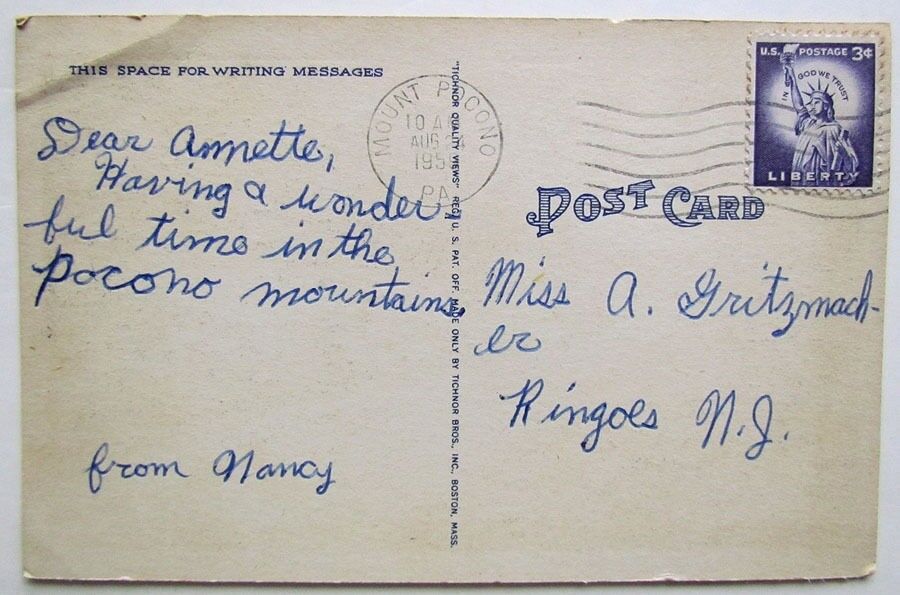 THIS SPACE FOR WRITING MESSAGES
Dear Annette,
Having a wonder-
ful time in the
Pocono mountains.
from Nancy
"TICHNOR QUALITY VIEWS" REG. U. S. PAT. OFF. MADE ONLY BY TICHNOR BROS., INC., BOSTON, MASS.
MOUNT POCONO
10 A
AUG
PA
U.S. POSTAGE 3¢
IN GOD WE TRUST
LIBERTY
POST CARD
Miss A. Gritzmach-
er
Ringoes N.J.